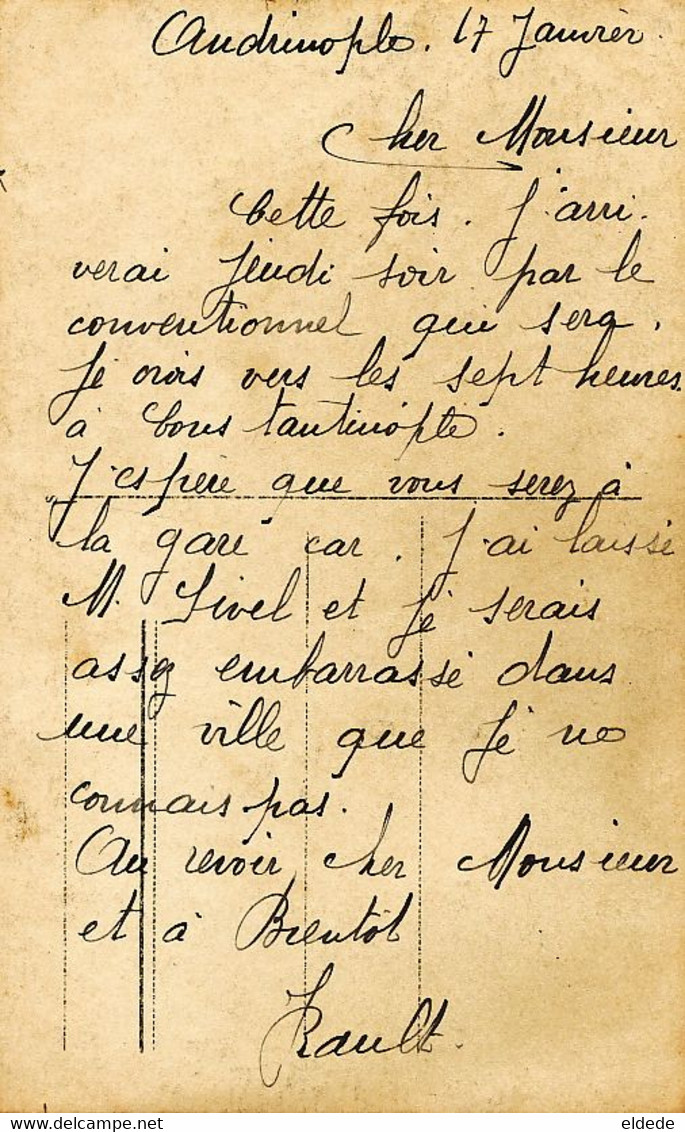 Andrinople. 17 Janvier.
Cher Monsieur
Cette fois. J'arri.
verai Jeudi soir par le
conventionnel qui sera.
Je crois vers les sept heures.
à Constantinople.
J'espère que vous serez à
la gare car. J'ai laissé
M. Sivel et Je serais
assez embarrassé dans
une ville que Je ne
connais pas.
Au revoir cher Monsieur
et à Bientôt
Rault.
eldede